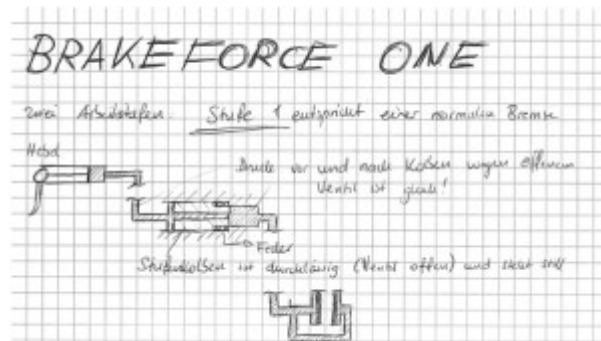 BRAKEFORCE ONE
zwei Arbeitsstufen. Stufe 1 entspricht einer normalen Bremse
Hebel
Druck vor und nach Kolben wegen offenem
Ventil ist gleich!
Feder
Stufenkolben ist durchlässig (Ventil offen) und steht still